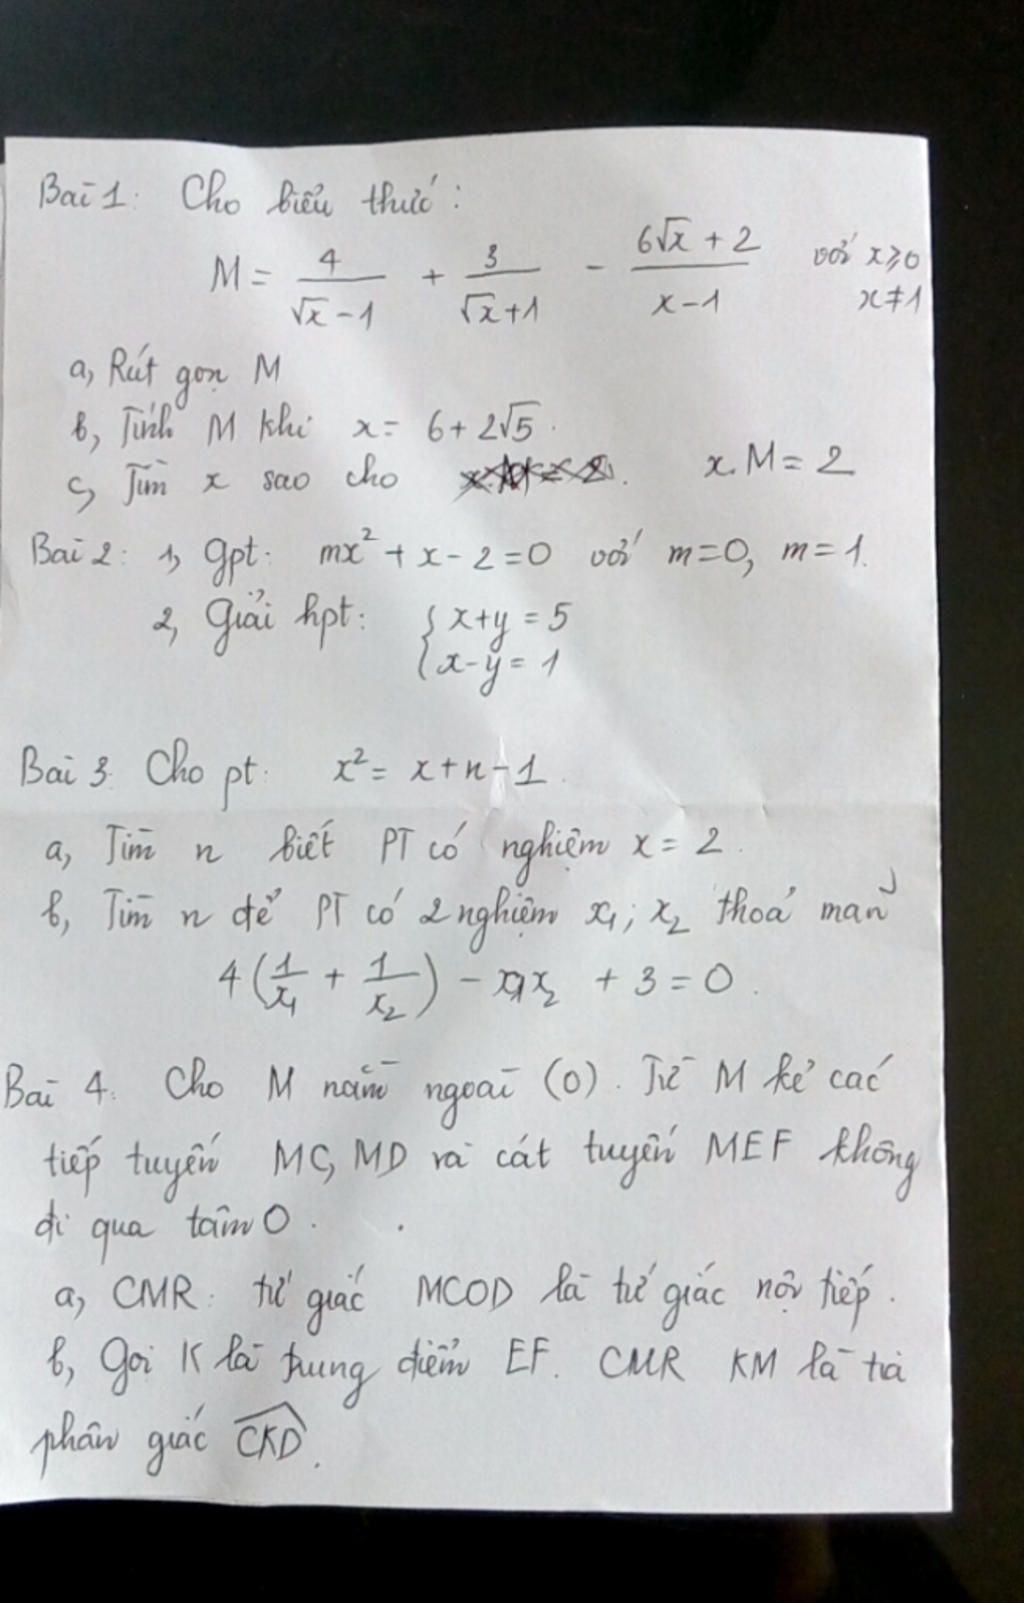 Bài 1: Cho biểu thức:
M = 4/(√x - 1) + 3/(√x + 1) - (6√x + 2)/(x - 1) với x ≥ 0
x ≠ 1
a, Rút gọn M
b, Tính M khi x = 6 + 2√5.
c, Tìm x sao cho x.M = 2
Bài 2: 1, Gpt: mx² + x - 2 = 0 với m = 0, m = 1.
2, Giải hpt: { x + y = 5
x - y = 1
Bài 3. Cho pt: x² = x + n - 1.
a, Tìm n biết PT có nghiệm x = 2.
b, Tìm n để PT có 2 nghiệm x₁; x₂ thoả mãn
4(1/x₁ + 1/x₂) - x₁x₂ + 3 = 0.
Bài 4. Cho M nằm ngoài (O). Từ M kẻ các
tiếp tuyến MC, MD và cát tuyến MEF không
đi qua tâm O.
a, CMR: tứ giác MCOD là tứ giác nội tiếp.
b, Gọi K là trung điểm EF. CMR KM là tia
phân giác CKD.